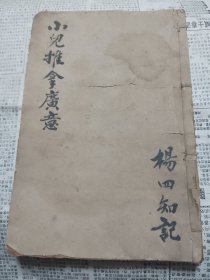 小兒推拿廣意
楊四知記